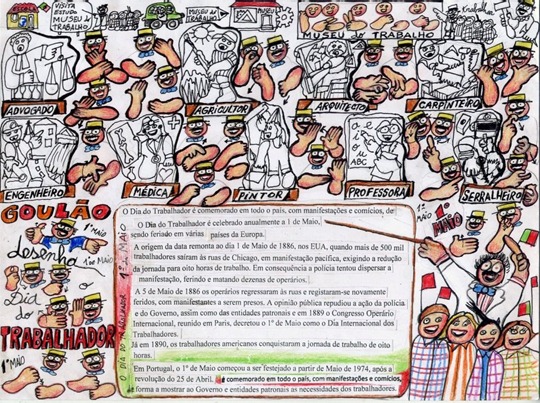 ESCOLA
VISITA
ESTUDO
MUSEU do
TRABALHO
MUSEU do
TRABALHO
MUSEU
MUSEU do TRABALHO
ADVOGADO
AGRICULTOR
ARQUITECTO
CARPINTEIRO
ENGENHEIRO
MÉDICA
PINTOR
PROFESSORA
SERRALHEIRO
ABC
GOULÃO
1º MAIO
desenha
1º de MAIO
o
Dia
do
TRABALHADOR
1º MAIO
O DIA DO TRABALHADOR 1º MAIO
O Dia do Trabalhador é comemorado em todo o país, com manifestações e comícios, de
O Dia do Trabalhador é celebrado anualmente a 1 de Maio,
sendo feriado em vários países da Europa.
A origem da data remonta ao dia 1 de Maio de 1886, nos EUA, quando mais de 500 mil
trabalhadores saíram às ruas de Chicago, em manifestação pacífica, exigindo a redução
da jornada para oito horas de trabalho. Em consequência a polícia tentou dispersar a
manifestação, ferindo e matando dezenas de operários.
A 5 de Maio de 1886 os operários regressaram às ruas e registaram-se novamente
feridos, com manifestantes a serem presos. A opinião pública repudiou a ação da polícia
e do Governo, assim como das entidades patronais e em 1889 o Congresso Operário
Internacional, reunido em Paris, decretou o 1º de Maio como o Dia Internacional dos
Trabalhadores.
Já em 1890, os trabalhadores americanos conquistaram a jornada de trabalho de oito
horas.
Em Portugal, o 1º de Maio começou a ser festejado a partir de Maio de 1974, após a
revolução de 25 de Abril. é comemorado em todo o país, com manifestações e comícios,
de forma a mostrar ao Governo e entidades patronais as necessidades dos trabalhadores.
1º MAIO
1º MAIO